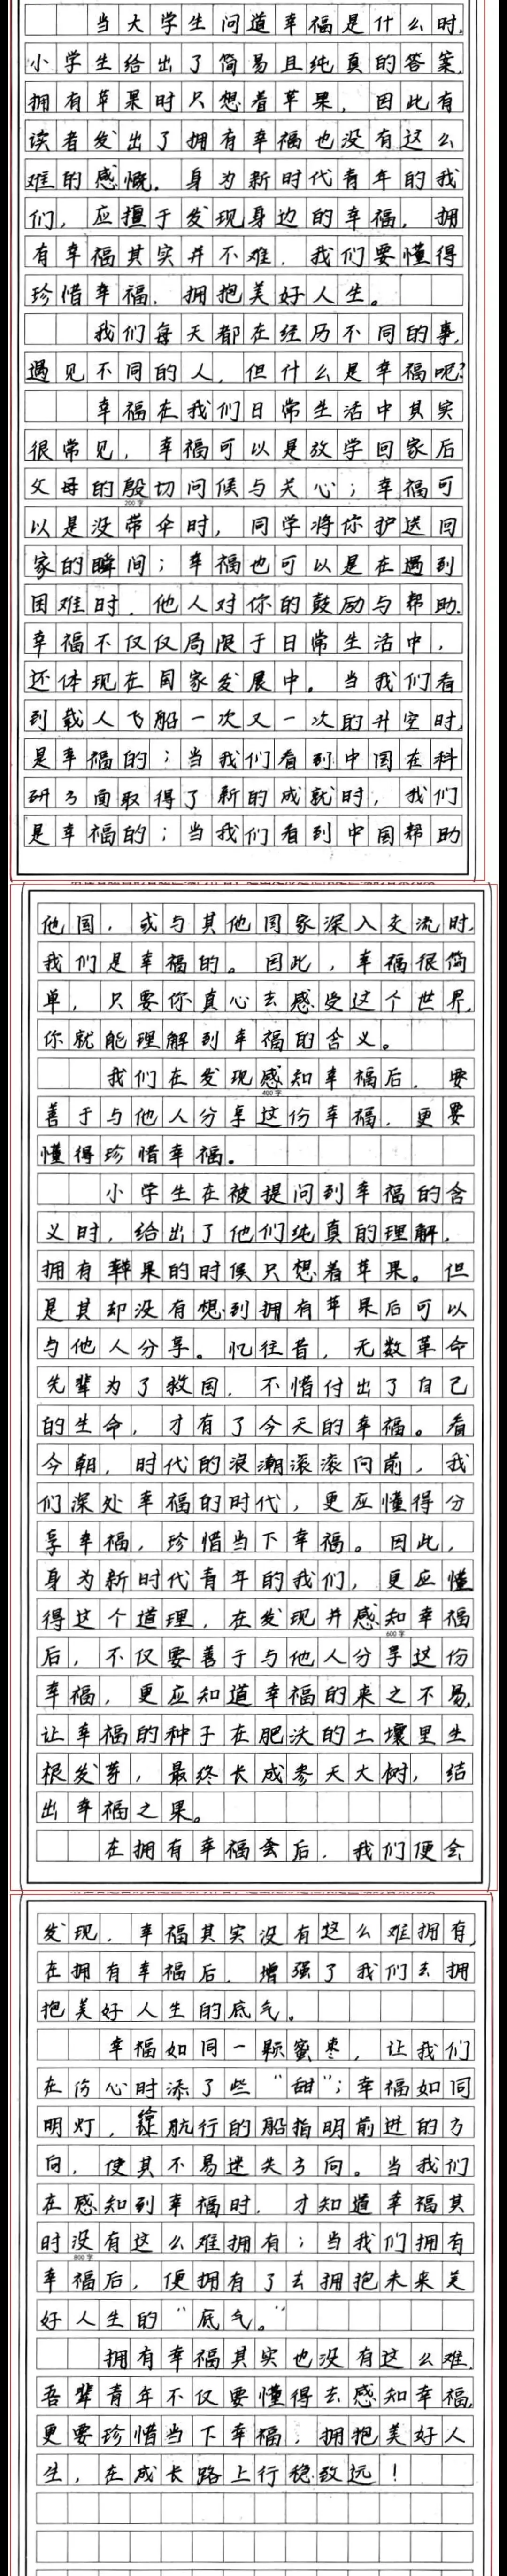 当大学生问道幸福是什么时,
小学生给出了简易且纯真的答案.
拥有苹果时只想着苹果，因此有
读者发出了拥有幸福也没有这么
难的感慨。身为新时代青年的我
们，应擅于发现身边的幸福，拥
有幸福其实并不难．我们要懂得
珍惜幸福．拥抱美好人生。
我们每天都在经历不同的事,
遇见不同的人，但什么是幸福呢?
幸福在我们日常生活中其实
很常见，幸福可以是放学回家后
父母的殷切问候与关心；幸福可
200字
以是没带伞时，同学将你护送回
家的瞬间；幸福也可以是在遇到
困难时．他人对你的鼓励与帮助.
幸福不仅仅局限于日常生活中，
还体现在国家发展中。当我们看
到载人飞船一次又一次的升空时,
是幸福的；当我们看到中国在科
研方面取得了新的成就时，我们
是幸福的；当我们看到中国帮助
他国，或与其他国家深入交流时,
我们是幸福的。因此，幸福很简
单，只要你真心去感受这个世界,
你就能理解到幸福的含义。
我们在发现感知幸福后．要
400字
善于与他人分享这份幸福，更要
懂得珍惜幸福。
小学生在被提问到幸福的含
义时，给出了他们纯真的理解，
拥有苹果的时候只想着苹果。但
是其却没有想到拥有苹果后可以
与他人分享。忆往昔，无数革命
先辈为了救国，不惜付出了自己
的生命，才有了今天的幸福。看
今朝，时代的浪潮滚滚向前，我
们深处幸福的时代，更应懂得分
享幸福，珍惜当下幸福。因此，
身为新时代青年的我们，更应懂
得这个道理，在发现并感知幸福
600字
后，不仅要善于与他人分享这份
幸福，更应知道幸福的来之不易,
让幸福的种子在肥沃的土壤里生
根发芽，最终长成参天大树，结
出幸福之果。
在拥有幸福会后，我们便会
发现，幸福其实没有这么难拥有,
在拥有幸福后．增强了我们去拥
抱美好人生的底气。
幸福如同一颗蜜枣，让我们
在伤心时添了些“甜”；幸福如同
明灯，给航行的船指明前进的方
向，使其不易迷失方向。当我们
在感知到幸福时．才知道幸福其
时没有这么难拥有；当我们拥有
800字
幸福后，便拥有了去拥抱未来美
好人生的“底气。”
拥有幸福其实也没有这么难.
吾辈青年不仅要懂得去感知幸福,
更要珍惜当下幸福，拥抱美好人
生，在成长路上行稳致远！